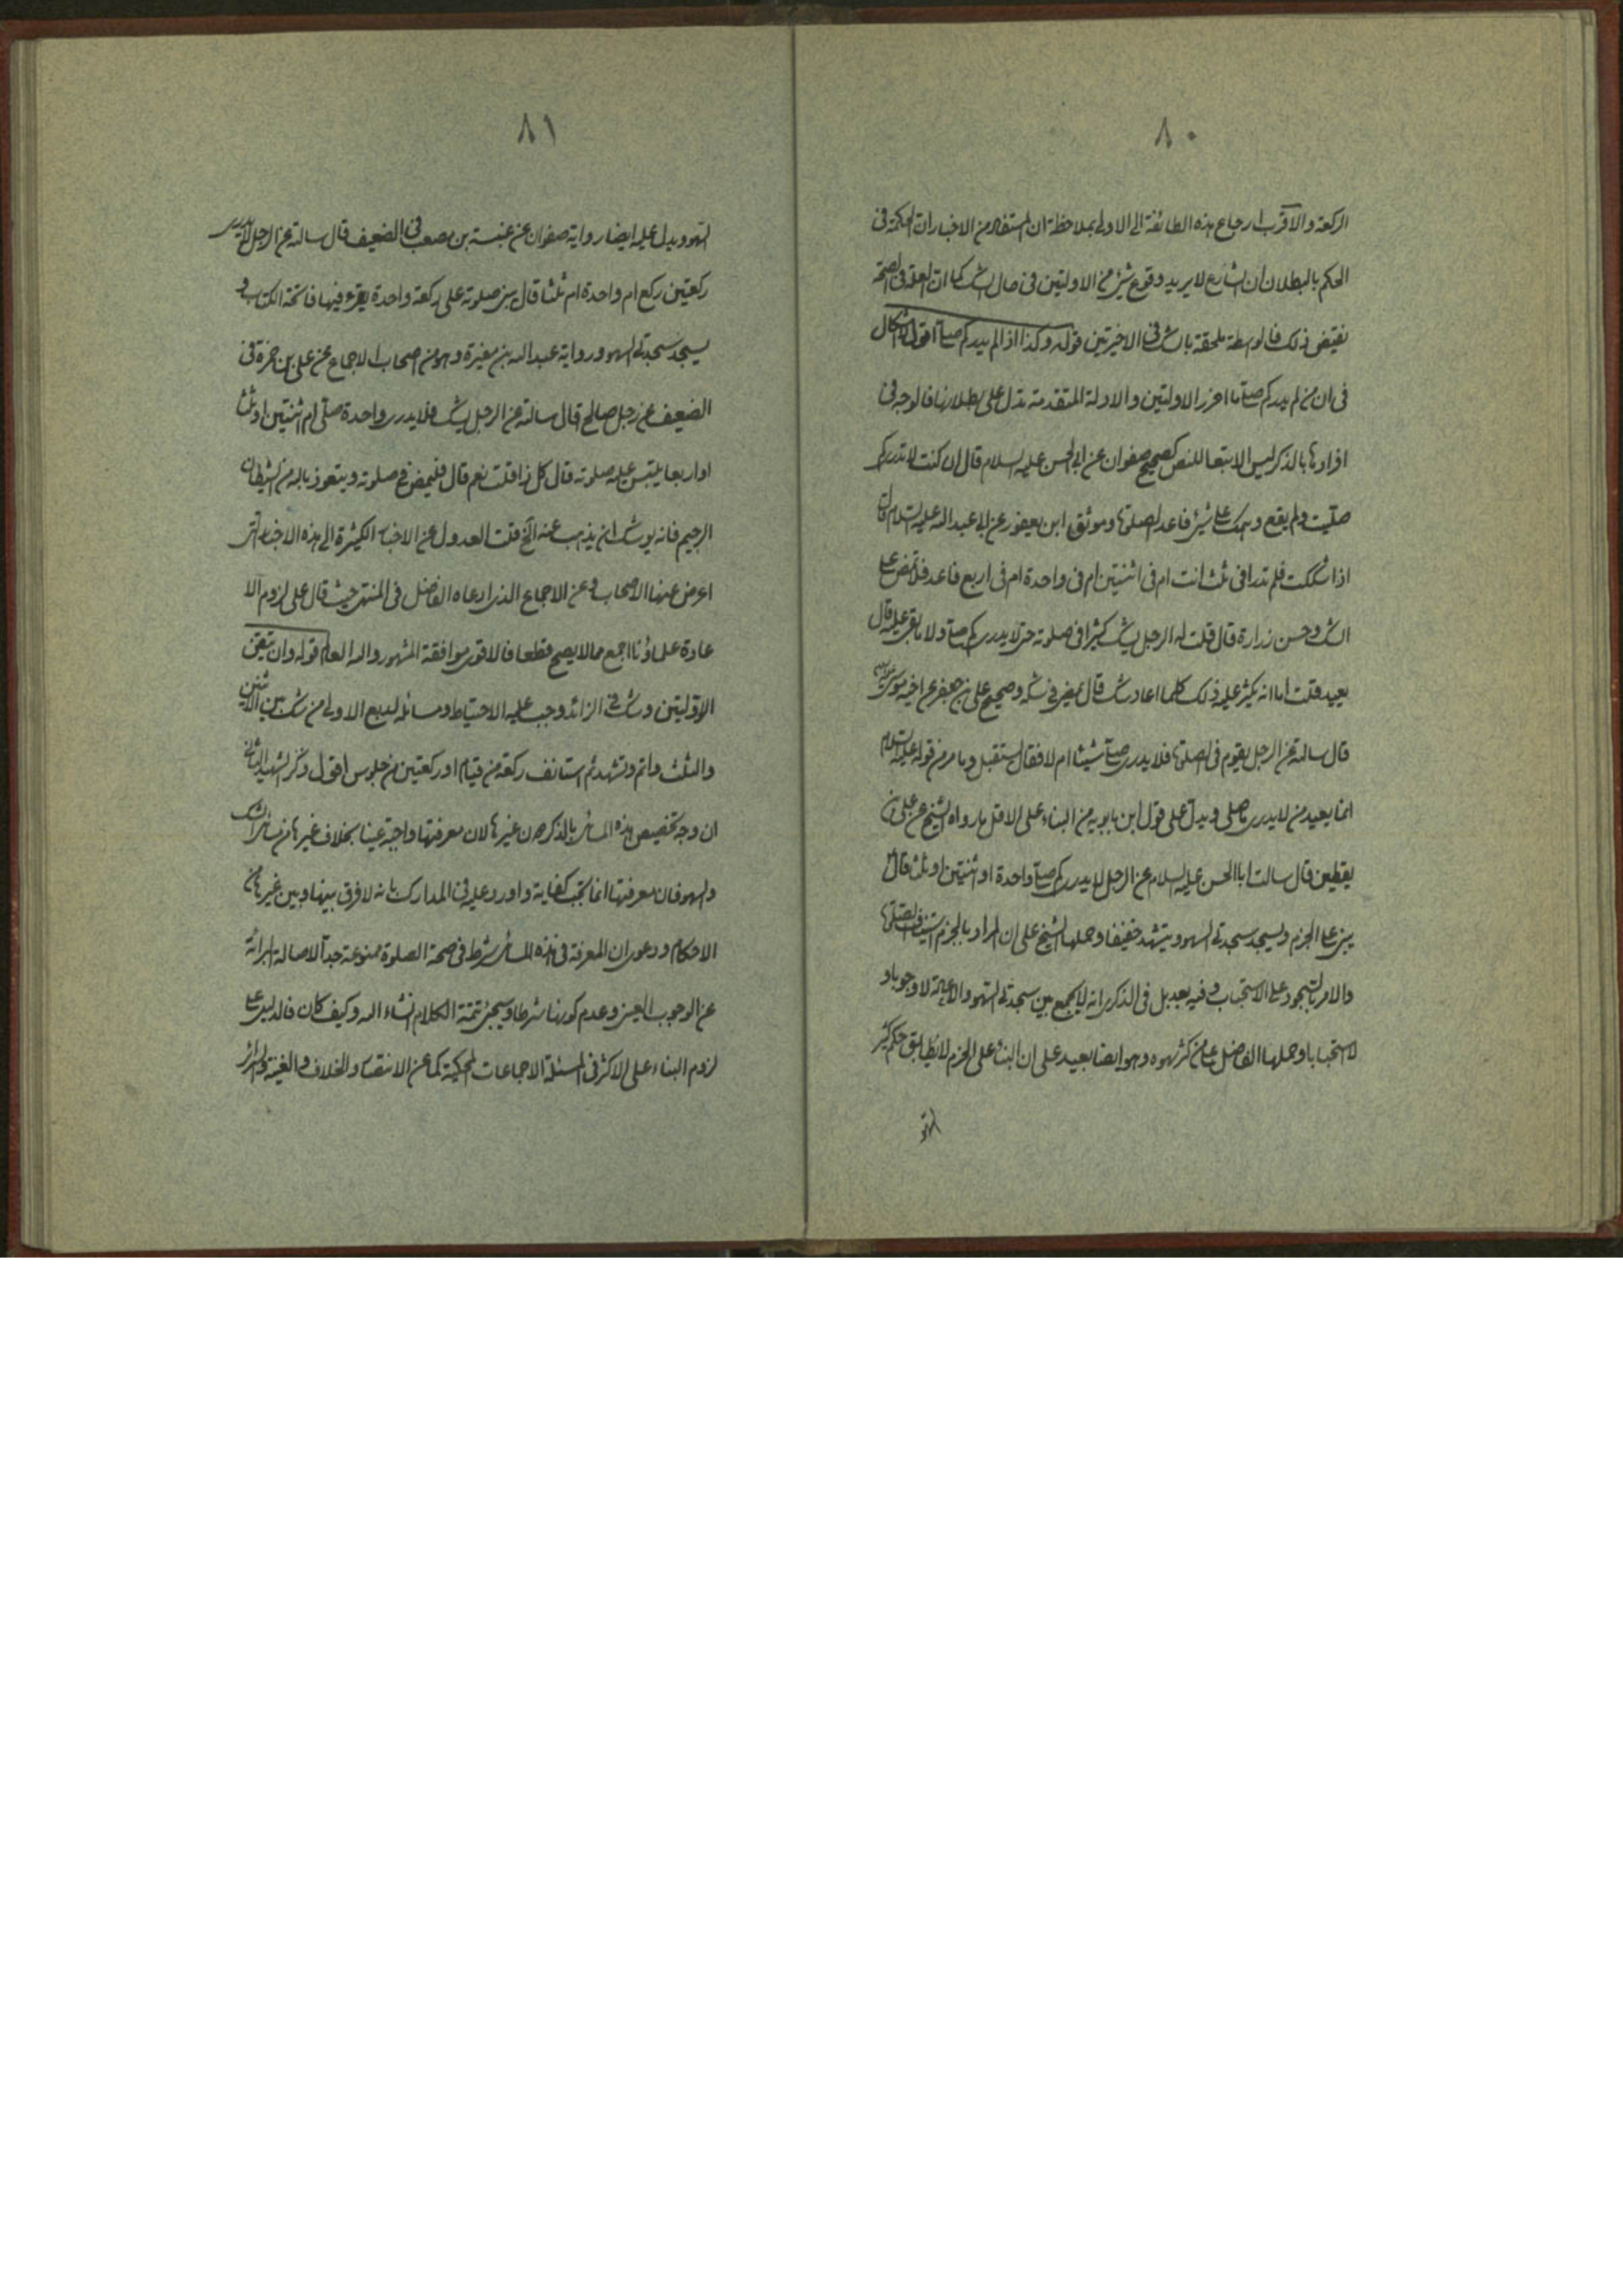 ٨٠
الركعة والاقرب ارجاع هذه الطائفة الى الاولى بملاحظة ان المستفاد من الاخبار ان الحكمة فى
الحكم بالبطلان ان الشارع لا يريد وقوع شئ من الاولتين فى حال الشك كما ان العلة فى الصحة
نقيض ذلك فالواسطة ملحقة بالشك فى الاخيرتين قوله وكذا اذا لم يدر كم صلى اقول لا اشكال
فى ان من لم يدر كم صلى ما احرز الاولتين والادلة المتقدمة تدل على بطلانها فالوجه فى
افرادها بالذكر ليس الا تبعا للنص كصحيح صفوان عن ابى الحسن عليه السلام قال ان كنت لا تدرى كم
صليت ولم يقع وهمك على شئ فاعد الصلوة وموثق ابن يعفور عن ابى عبد الله عليه السلام قال
اذا شككت فلم تدر افى ثلث انت ام فى اثنتين ام فى واحدة ام فى اربع فاعد فلا تمض على
الشك وحسن زرارة قال قلت له الرجل يشك كثيرا فى صلوته حتى لا يدرى كم صلى ولا ما بقى عليه قال
يعيد قلت اما انه يكثر عليه ذلك كلما اعاد شك قال يمضى فى شكه وصحيح على بن جعفر عن اخيه موسى
قال سالته عن الرجل يقوم فى الصلوة فلا يدرى صلى شيئا ام لا فقال يستقبل وما مر من قوله عليه السلام
انما يعيد من لا يدرى ما صلى ويدل على قول ابن بابويه من البناء على الاقل ما رواه الشيخ عن على بن
يقطين قال سالت ابا الحسن عليه السلام عن الرجل لا يدرى كم صلى واحدة او اثنتين او ثلث قال
يبنى على الجزم ويسجد سجدتى السهو ويتشهد خفيفا وحملها الشيخ على ان المراد بالجزم استيناف الصلوة
والامر بالسجود على الاستحباب وفيه بعد بل فى الذكرى انه لا يجمع بين سجدتى السهو والاعادة لا وجوبا و
لا استحبابا وحملها الفاضل على من كثر سهوه وهو ايضا بعيد على ان البناء على الجزم لا يطابق حكم كثير
السهو
٨١
السهو ويدل عليه ايضا رواية صفوان عن عنبسة بن مصعب فى الضعيف قال سالته عن الرجل لا يدرى
ركعتين ركع ام واحدة ام ثلثا قال يبنى صلوته على ركعة واحدة يقرء فيها فاتحة الكتاب و
يسجد سجدتى السهو ورواية عبد الله بن مغيرة وهو من اصحاب الاجماع عن على بن حمزة فى
الضعيف عن رجل صالح قال سالته عن الرجل يشك فلا يدرى واحدة صلى ام اثنتين او ثلث
او اربعا يلتبس عليه صلوته قال كل ذا قلت نعم قال فليمض فى صلوته ويتعوذ بالله من الشيطان
الرجيم فانه يوشك ان يذهب عنه الخ قلت العدول عن الاخبار الكثيرة الى هذه الاخبار التى
اعرض عنها الاصحاب وعن الاجماع الذى ادعاه الفاضل فى المنتهى حيث قال على لزوم الا
عادة علماؤنا اجمع مما لا يصح قطعا فالاقوى موافقة المشهور والله العالم قوله وان تيقن
الاولتين وشك فى الزائد وجب عليه الاحتياط ومسائله اربع الاولى من شك بين الاثنين
والثلث واتم وتشهد ثم استانف ركعة من قيام او ركعتين من جلوس اقول ذكر الشهيد الثانى
ان وجه تخصيص هذه المسائل بالذكر من غيرها لان معرفتها واجبة عينا بخلاف غيرها من مسائل الشك
والسهو فان معرفتها انما تجب كفاية واورد عليه فى المدارك بانه لا فرق بينها وبين غيرها من
الاحكام ودعوى ان المعرفة فى هذه المسائل شرط فى صحة الصلوة ممنوعة جدا لاصالة البرائة
عن الوجوب العينى وعدم كونها شرطا وسيجئ تتمة الكلام انشاء الله وكيف كان فالدليل على
لزوم البناء على الاكثر فى المسئلة الاجماعات المحكية كما عن الانتصار والخلاف والغنية والسرائر